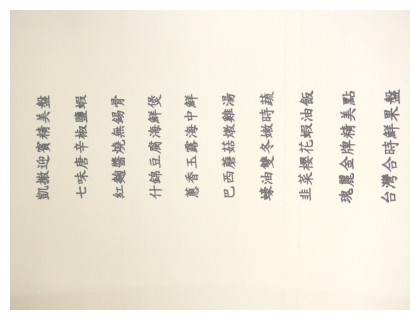 凱撒迎賓精美盤
七味唐辛椒鹽蝦
紅麴醬燒無錫骨
什錦豆腐海鮮煲
蔥香玉露海中鮮
巴西蘑菇燉雞湯
蠔油雙冬嫩時蔬
韭菜櫻花蝦油飯
瑰麗金牌精美點
台灣合時鮮果盤